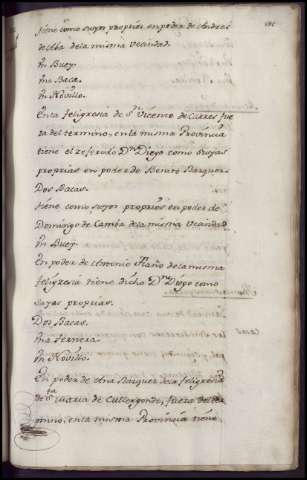 tiene como suyas proprias en poder de Andres
de la misma vecindad.
Un Buey.
Una Baca.
Un Novillo.
En la feligresia de Sn. Vicente de Carres fue
ra del termino, en la misma Provincia
tiene el referido Dn. Diego como suyas
proprias en poder de Benito Bazquez
Dos Bacas.
Tiene como suyos proprios en poder de
Domingo de Camba de la misma Vecindad
Un Buey.
En poder de Antonio Riaño de la misma
feligresia tiene dicho Dn. Diego como
suyas proprias.
Dos Bacas.
Una Ternera.
Un Novillo.
En poder de Ana Bazquez de la feligresia
de Sta. Maria de Cullergondo, fuera del ter
mino, en la misma Provincia tiene